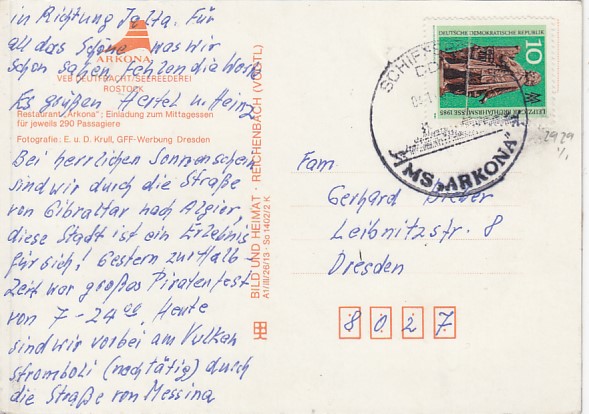 in Richtung Jalta. Für
all das Schöne was wir
schon sahen fehlen die Worte
Es grüßen Hertel u. Heinz
ARKONA
VEB DEUTFRACHT/SEEREEDEREI
ROSTOCK
Restaurant „Arkona“; Einladung zum Mittagessen
für jeweils 290 Passagiere
Fotografie: E. u. D. Krull, GFF-Werbung Dresden
Bei herrlichen Sonnenschein
sind wir durch die Straße
von Gibraltar nach Algier,
diese Stadt ist ein Erlebnis
für sich! Gestern zur Halb-
Zeit war großes Piratenfest
von 7 - 24 00. Heute
sind wir vorbei am Vulkan
Stromboli (nachtätig) durch
die Straße von Messina
BILD UND HEIMAT · REICHENBACH (VOGTL)
A1/III/26/13 · So 1402/2 K
DEUTSCHE DEMOKRATISCHE REPUBLIK
10
LEIPZIGER FRÜHJAHRSMESSE 1985
MS „ARKONA“
2929
Fam
Gerhard
Leibnitzstr. 8
Dresden
8027